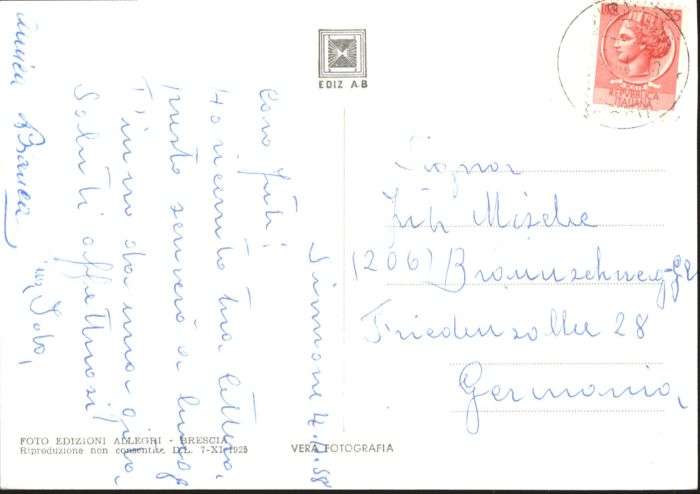 EDIZ AB
35
REPVBBLICA
ITALIANA
Sirmione
58
Caro Juti!
Ho ricevuto tua lettera,
presto scriverò a lungo
T'invio da una gita,
Saluti affettuosi!
amica Bianca
Signor
Mische
(206) Braunschweig-
Friedenzallee 28
Germania,
FOTO EDIZIONI ALLEGRI - BRESCIA
Riproduzione non consentita D.L. 7-XI-1925
VERA FOTOGRAFIA